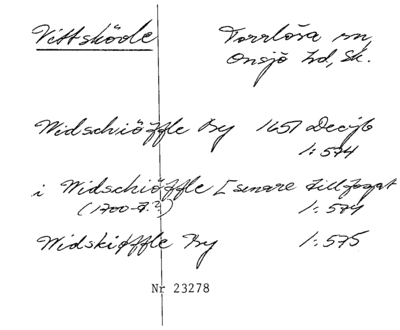 Vittskövle Torrlösa sn,
Onsjö hd, Sk.
Widschiöffle By 1651 Decijb
1:574
i Widschiöffle [senare tillfogat
(1700-t.?) 1:574
Widskiøffle By 1:575
Nr 23278